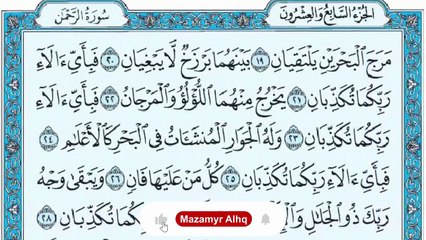 الجزء السابع والعشرون
سورة الرحمن
مَرَجَ الْبَحْرَيْنِ يَلْتَقِيَانِ ١٩ بَيْنَهُمَا بَرْزَخٌ لَّا يَبْغِيَانِ ٢٠ فَبِأَيِّ آلَاءِ
رَبِّكُمَا تُكَذِّبَانِ ٢١ يَخْرُجُ مِنْهُمَا اللُّؤْلُؤُ وَالْمَرْجَانُ ٢٢ فَبِأَيِّ آلَاءِ
رَبِّكُمَا تُكَذِّبَانِ ٢٣ وَلَهُ الْجَوَارِ الْمُنشَئَاتُ فِي الْبَحْرِ كَالْأَعْلَامِ ٢٤
فَبِأَيِّ آلَاءِ رَبِّكُمَا تُكَذِّبَانِ ٢٥ كُلُّ مَنْ عَلَيْهَا فَانٍ ٢٦ وَيَبْقَى وَجْهُ
رَبِّكَ ذُو الْجَلَالِ تُكَذِّبَانِ ٢٨
Mazamyr Alhq